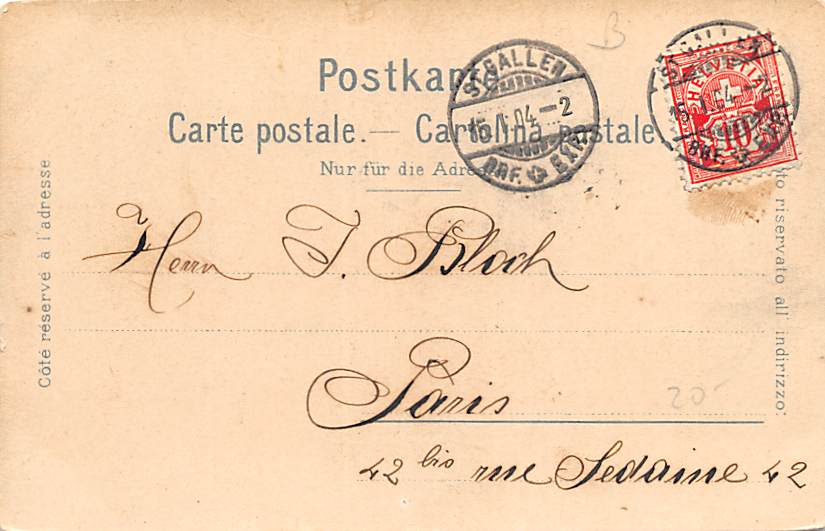 B
Postkarte.
Carte postale. — Cartolina postale.
Nur für die Adresse.
ST. GALLEN
15. I. 04 – 2
BRF. EXP.
ST. GALLEN
HELVETIA
10
15. I. 04 – 2
BRF. EXP.
Côté réservé à l'adresse
Lato riservato all' indirizzo:
Herrn J. Bloch
Paris
20-
42 bis rue Sedaine 42